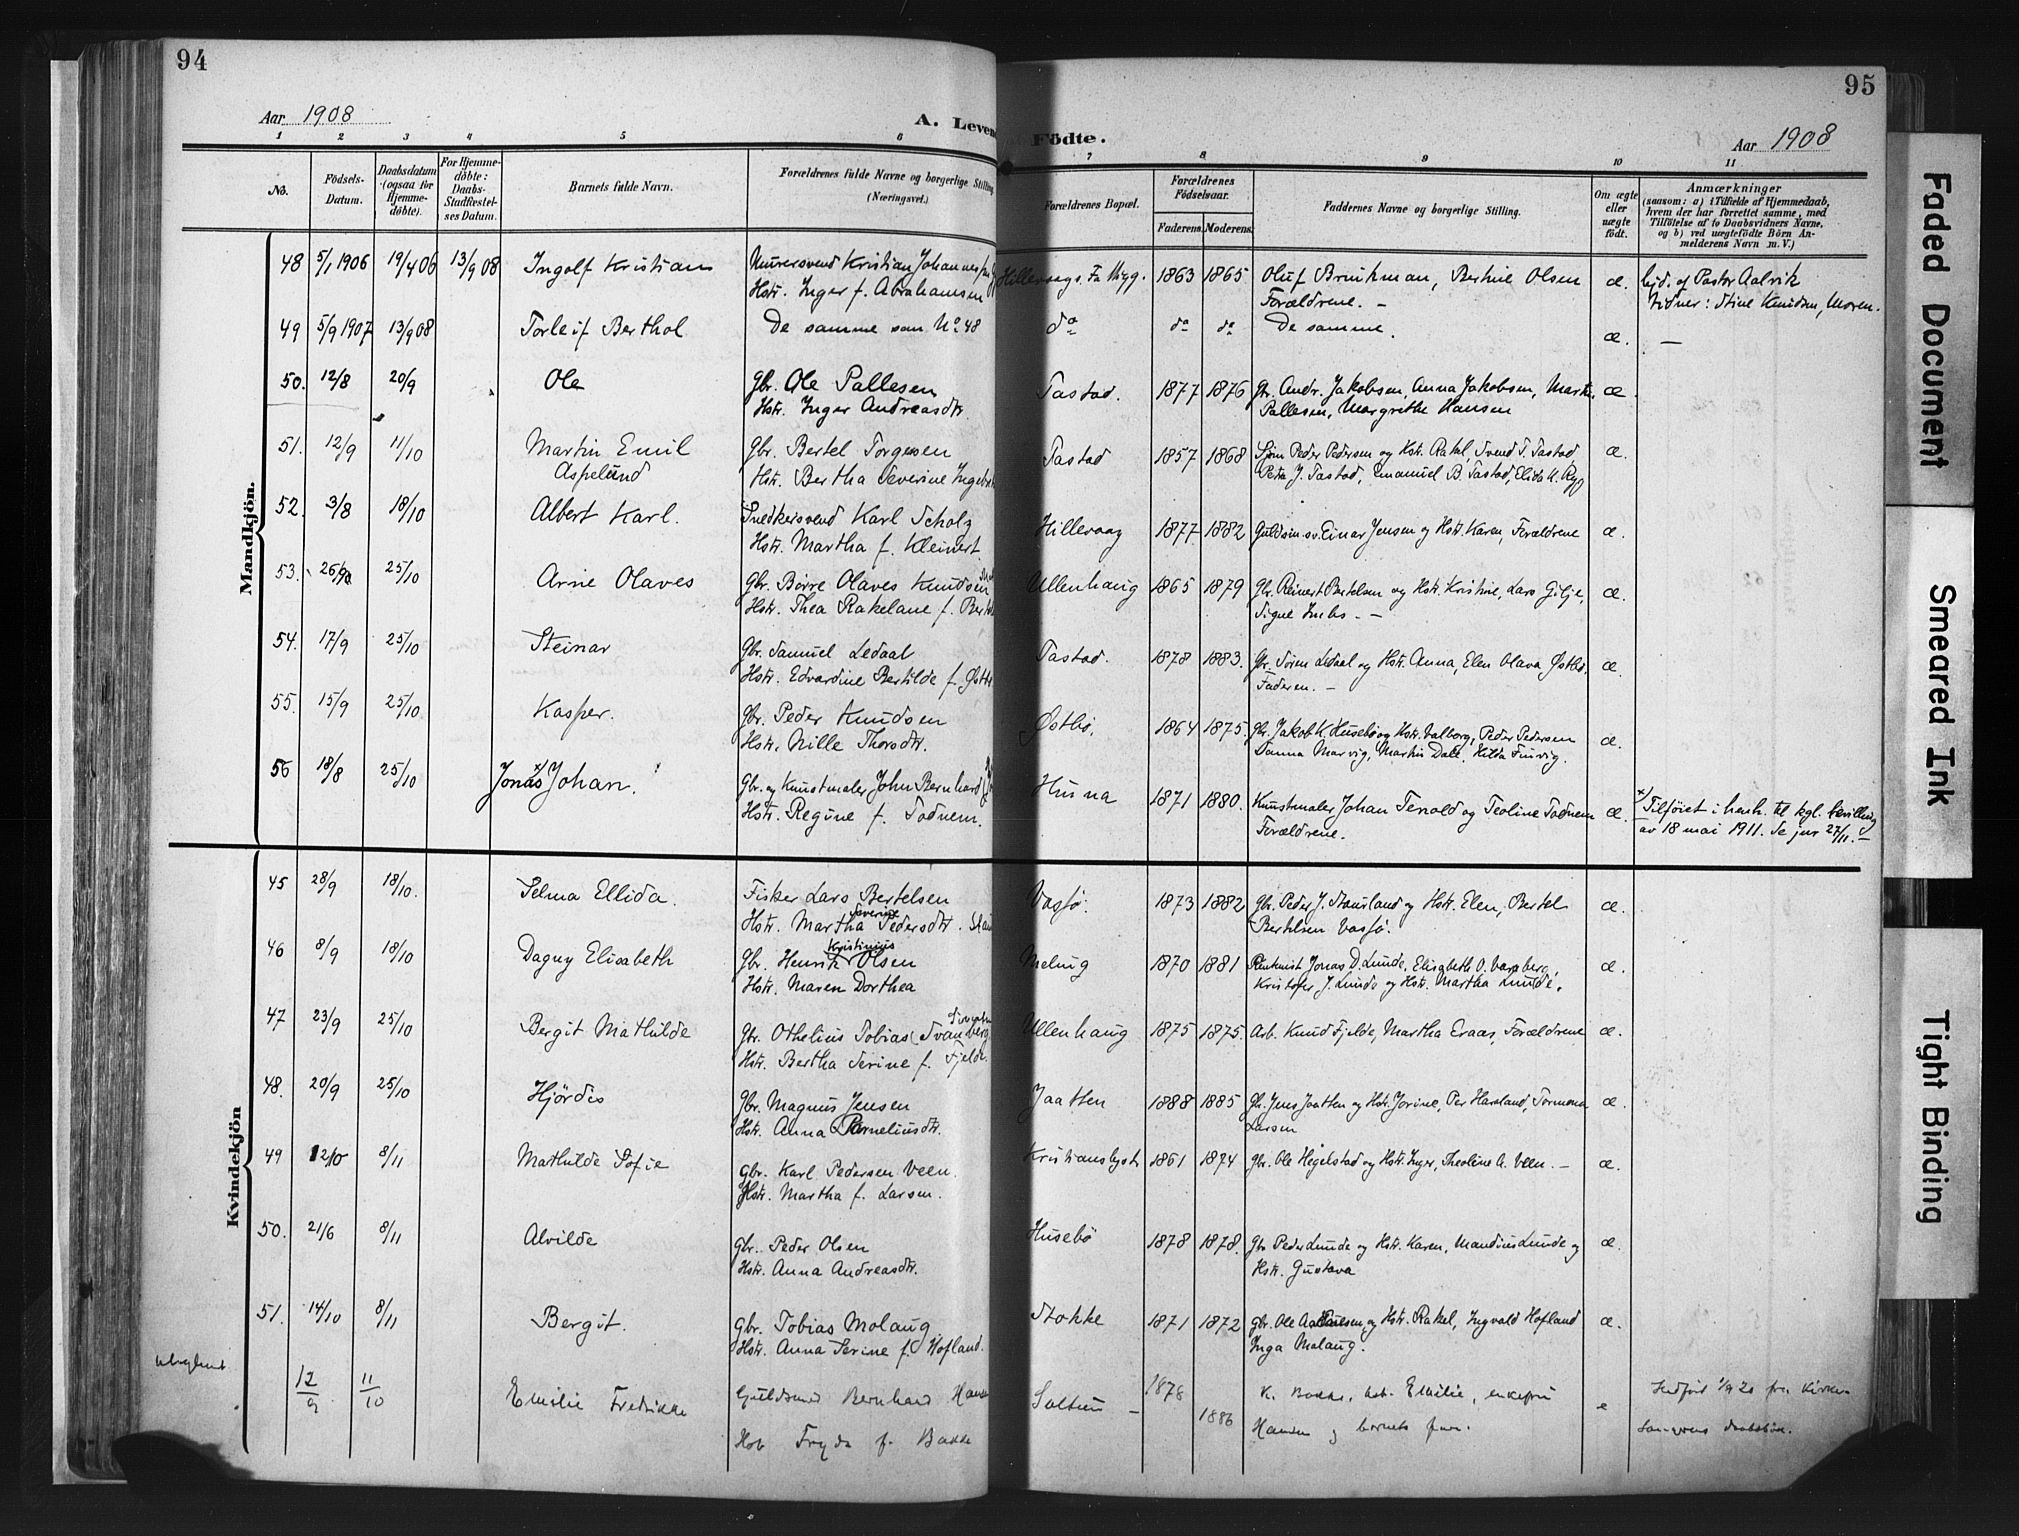 94
95
Aar 1908
A. Levend Födte.
Aar 1908
1 2 3 4 5 6 7 8 9 10 11
No.
Födsels-Datum.
Daabsdatum (ogsaa for Hjemmedöbte).
For Hjemmedöbte: Daabs-Stadfestelses Datum.
Barnets fulde Navn.
Forældrenes fulde Navne og borgerlige Stilling (Næringsvei.)
Forældrenes Bopæl.
Forældrenes Födselsaar.
Faderens. Moderens.
Faddernes Navne og borgerlige Stilling.
Om ægte eller uægte födt.
Anmærkninger
(saasom: a) i Tilfælde af Hjemmedaab, hvem der har forrettet samme, med Tilföielse af to Daabsvidners Navne, og b) ved uægtefödte Börn Anmelderens Navn m. V.)
Mandkjön.
48 5/1 1906 19/4 06 13/9 08 Ingolf Kristian Murersvend Kristian Johannes Hillevaag 1863 1865 Oluf Brinkman, Bertine Olsen æ. hjd. af Pastor Aalvik
Hstr. Inger f. Abrahamsen Forældrene. — Vidner: Stine Knudsen, Moren.
49 5/9 1907 13/9 08 Torleif Berthol De samme som No 48 do do do De samme. æ. —
50. 12/8 20/9 Ole Gbr. Ole Pallesen Tastad. 1877 1876 Gbr. Andr. Jakobsen, Anna Jakobsen, Martin æ.
Hstr. Inger Andreasdtr. Pallesen, Margrethe Hansen
51. 12/9 11/10 Martin Emil Gbr. Bertel Torgersen Tastad 1857 1868 Peder Pedersen og Hstr. Rakel, Svend T. Tastad æ.
Aspelund Hstr. Bertha Severine Petra J. Tastad, Emanuel B. Tastad,
52. 3/8 18/10 Albert Karl. Snedkersvend Karl Scholz Hillevaag 1877 1882 Guldsm.sv. Einar Jensen og Hstr. Karen, Forældrene æ.
Hstr. Martha f. Kleinert.
53. 26/9 25/10 Arne Olaves Gbr. Börre Olaves Knudsen Ullenhaug 1865 1879 Gbr. Reinert Bertelsen og Hstr. Kristine, Lars Gilje, æ.
Hstr. Thea Rakelane f. Signe —
54. 17/9 25/10 Steinar Gbr. Samuel Ledaal Tastad. 1878 1883. Gbr. Sören Ledaal og Hstr. Anna, Elen Olava Østbö, æ.
Hstr. Edvardine Bertilde f. Østb Faderen. —
55. 15/9 25/10 Kasper. Gbr. Peder Knudsen Østbö. 1864 1875. Gbr. Jakob K. Husebö og Hstr. Valborg, Peder Pedersen æ.
Hstr. Nille Thorsdtr. Martin Dale,
56 18/8 25/10 Jonas x Johan. Gbr. og Kunstmaler John Bernhard Husna 1871 1880. Kunstmaler Johan Tenold og Teoline Todnem æ. x Tilføiet i henh. til kgl. bevilling
Hstr. Regine f. Todnem. Forældrene. av 18 mai 1911. Se jnr 27/11. —
Kvindekjön
45 28/9 18/10. Selma Ellida. Fisker Lars Bertelsen Vasjö. 1873 1882 Gbr. Peder J. og Hstr. Elen, Bertel æ.
Hstr. Martha Severine Pedersdtr. Bertelsen Vasjö.
46 8/9 18/10 Dagny Elisabeth Gbr. Henrik Kristinius Olsen Meling 1870 1881 Jonas D. Lunde, Elisabeth O. æ.
Hstr. Maren Dorthea Kristofer J. Lunde og Hstr. Martha Lunde.
47 23/9 25/10 Bergit Mathilde Gbr. Othelius Tobias Svanberg Ullenhaug 1875 1875. Arb. Knud Fjelde, Martha Eraas, Forældrene æ.
Hstr. Bertha Serine f. Fjelde
48. 20/9 25/10 Hjördis Gbr. Magnus Jensen Jaatten 1888 1885 Gbr. Jens Jaatten og Hstr. Jorine, Per Haraland, æ.
Hstr. Anna Corneliusdtr. Larsen
49 12/10 8/11 Mathilde Sofie Gbr. Karl Pedersen Veen. Kristianslyst 1861 1874 Gbr. Ole Hegelstad og Hstr. Inger, Theoline A. Veen. — æ.
Hstr. Martha f. Larsen.
50. 21/6 8/11 Alvilde Gbr. Peder Olsen Husebö 1878 1878. Gbr Peder Lunde og Hstr. Karen, Mandius Lunde og æ.
Hstr. Anna Andreasdtr. Hstr. Gustava
51. 14/10 8/11 Bergit. Gbr. Tobias Molaug Stokke 1871 1872 Gbr. Ole og Hstr. Rakel, Ingvald Hofland æ.
Hstr. Anna Serine f. Hofland. Inga Molaug.
12/9 11/10 Emilie Fredrikke Guldsmed Bernhard Hansen — 1878 1886 K. Bakke, Emilie, enkefru e Indført 1/9 20 fra Kirke-
Hob Fryda f. Bakke Hansen og barnets far. sangerens daabsbok.
Faded Document
Smeared Ink
Tight Binding